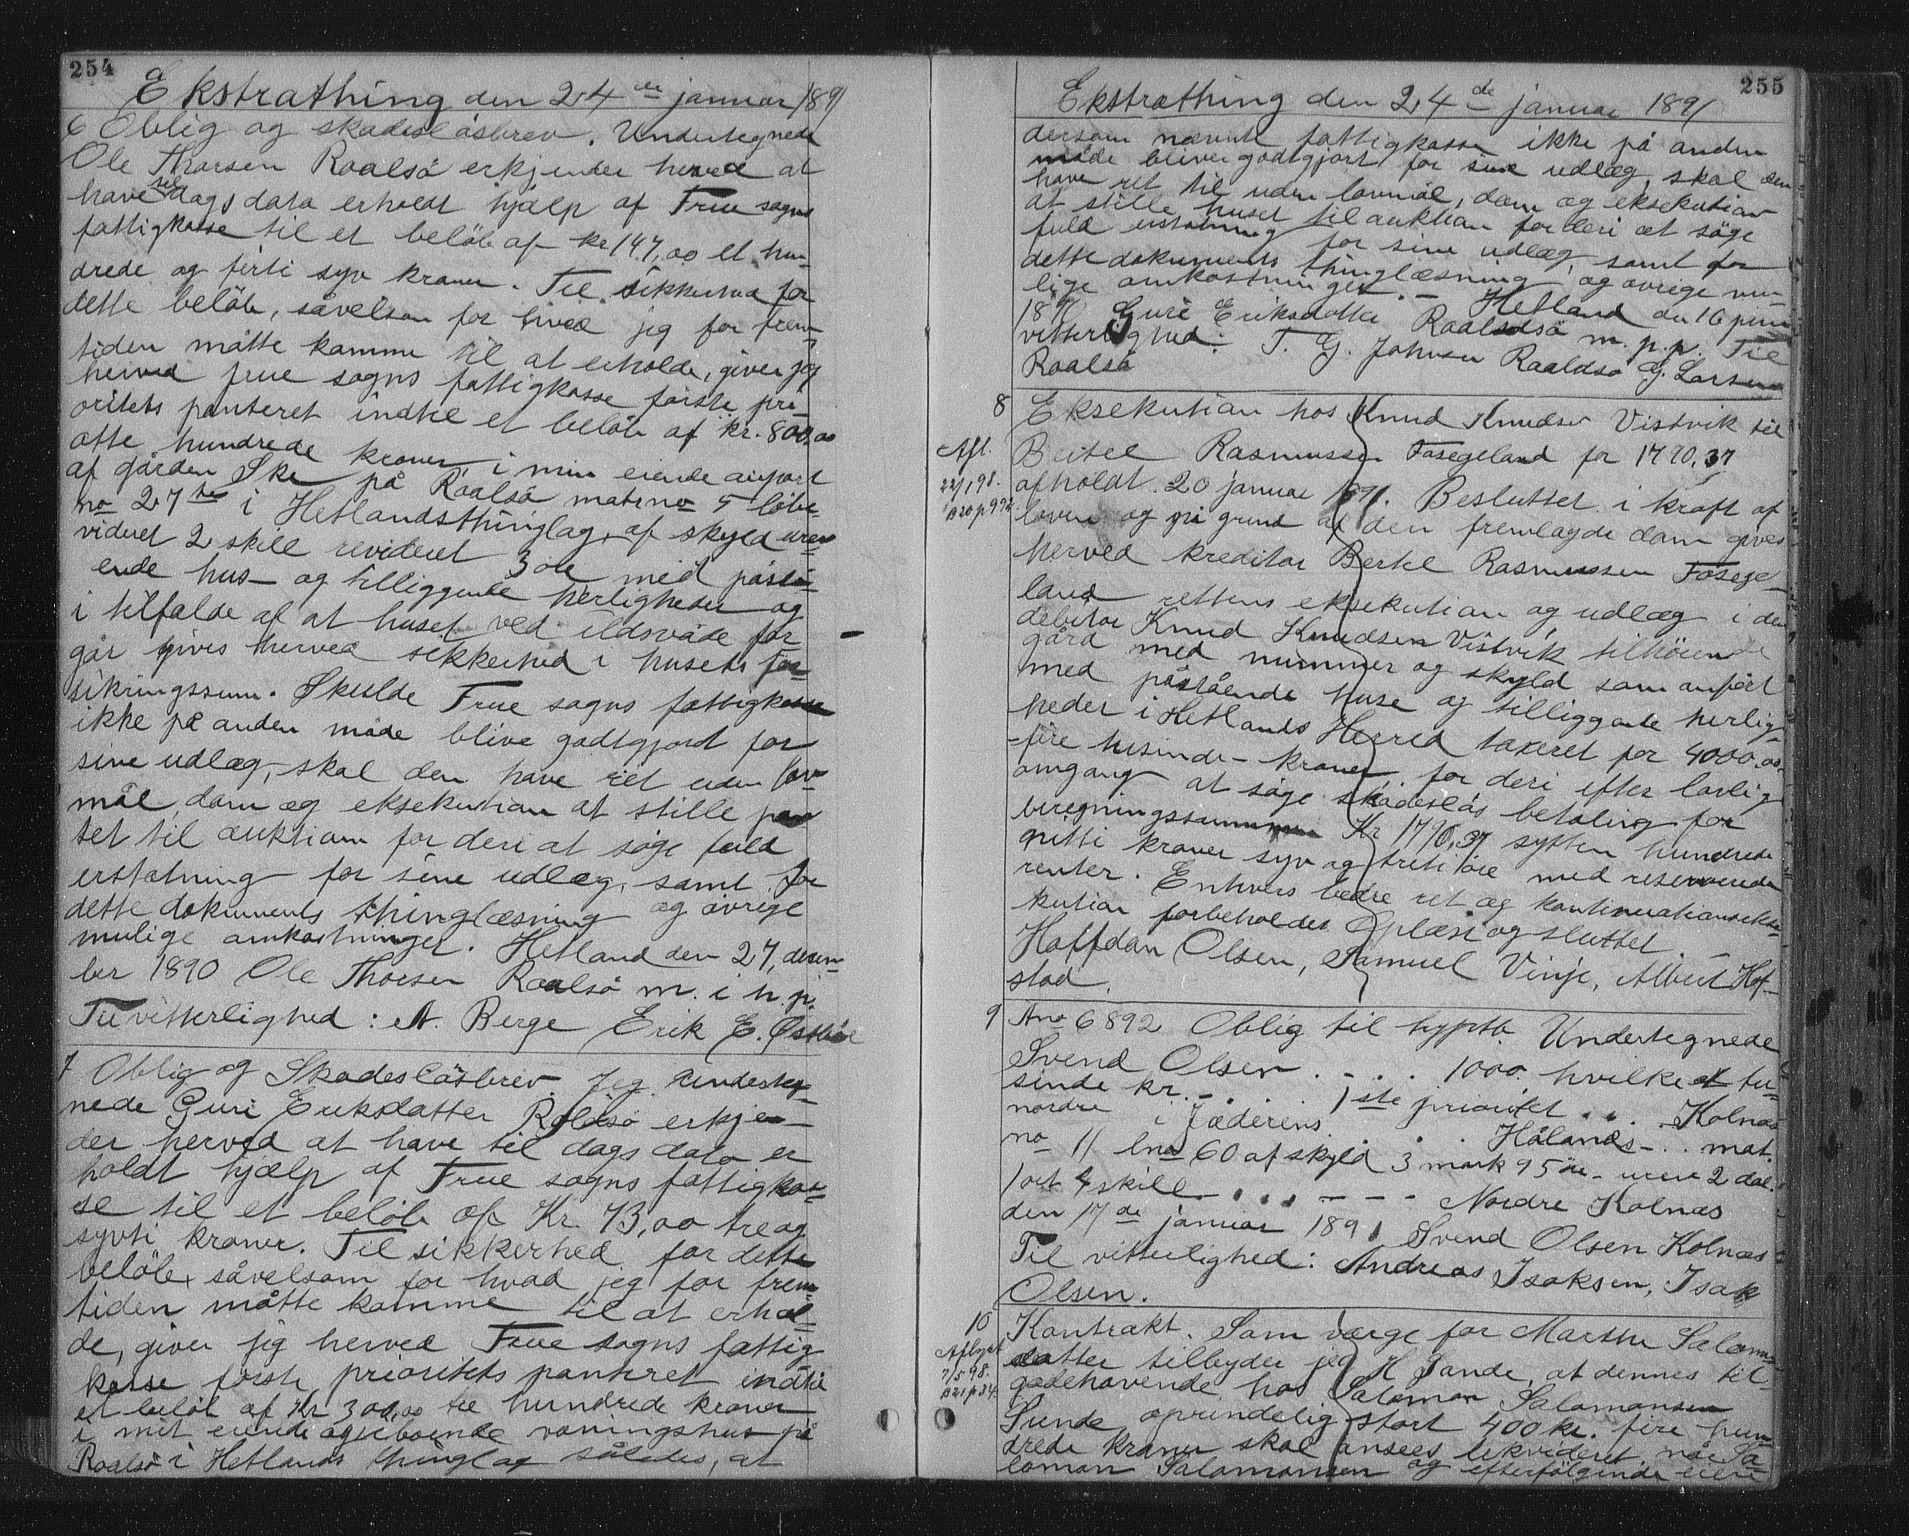 254
Ekstrathing den 24de januar 1891
6 Oblig og skadesløsbrev. Undertegnede
Ole Thorsen Roalsö erkjender herved at
have til dags dato erholdt hjælp af Frue sogns
fattigkasse til et beløb af kr 147,00 et hun-
drede og firti syv kroner. Til sikkerhed for
dette beløb, såvelsom for hvad jeg for frem-
tiden måtte komme til at erholde, giver jeg
herved frue sogns fattigkasse første pri-
oritets panteret indtil et beløb af kr. 800,00
otte hundrede kroner i min eiende anpart
af gården Ske på Roalsö matrno 5 løbe-
no 27de i Hetlandsthinglag, af skyld urev-
videret 2 skill revideret 3 øre med påstå-
ende hus- og tilliggende herligheder og
i tilfælde af at huset ved ildsvåde for-
går gives herved sikkerhed i husets for-
sikringssum. Skulde Frue sogns fattigkasse
ikke på anden måde blive godtgjord for
sine udlæg, skal den have ret uden lov-
mål, dom og eksekution at stille pan-
tet til auktion for deri at søge fuld
erstatning for sine udlæg, samt for
dette dokuments thinglæsning og øvrige
mulige omkostninger. Hetland den 27, decem-
ber 1890 Ole Thorsen Roalsö m. i h. p.
Til vitterlighed: A. Berge Erik E. Østhus
7 Oblig og Skadesløsbrev Jeg underteg-
nede Guri Eriksdatter Roldsö erkjen-
der herved at have til dags dato er
holdt hjælp af Frue sogns fattigkas-
se til et beløb af Kr. 73,00 tre og
sytti kroner. Til sikkerhed for dette
beløb såvelsom for hvad jeg for frem-
tiden måtte komme til at erhol-
de, giver jeg herved Frue sogns fattig
kasse første prioritets panteret indtil
et beløb af Kr 300,00 tre hundrede kroner
i mit eiende og iboende våningshus på
Roalsö i Hetlands thinglag således, at
255
Ekstrathing den 24de januar 1891
dersom nævnte fattigkasse ikke på anden
måde bliver godtgjort for sine udlæg, skal den
have ret til uden lovmål, dom og eksekution
at stille huset til auktion for deri at søge
fuld erstatning for sine udlæg, samt for
dette dokuments thinglæsning og øvrige mu-
lige omkostninger. - Hetland den 16 januar
1891 Guri Eriksdatter Roaldsö m. p. p. Til
vitterlighed: T. G. Johnsen Roaldsö G. Larsen
Roalsö
8 Eksekution hos Knud Knudsen Vistvik til
Afl.
22/1 98.
B 20 p 992
Bertel Rasmussen Fosegeland for 1790,37
afholdt 20 januar 1891. Besluttet i kraft af
loven og på grund af den fremlagde dom gives
herved kreditor Bertel Rasmussen Fosege-
land rettens eksekution og udlæg i den
debitor Knud Knudsen Vistvik tilhørende
gård med nummer og skyld som anført
med påstående huse og tilliggende herlig-
heder i Hetlands Herred taxeret for 4000,00
fire tusinde - kroner, for deri efter lovlig
omgang at søge skadesløs betaling for
beregningssummen Kr 1790,37 sytten hundrede
nitti kroner syv og treti øre med reserverede
renter. Enhvers bedre ret og kontinuationsekse-
kution forbeholdes. Oplæst og sluttet.
Halfdan Olsen, Samuel Vinje, Albert Hof-
stad.
9 Ano 6892 Oblig til hypotb. Undertegnede
Svend Olsen . - . . 1000. hvilke et tu-
sinde kr. - . . 1ste prioritet . . . Kolnæs
nordre i Jæderens . Hålands - . . mat.
no 11 lno 60 af skyld 3 mark 95 øre - urev 2 dal.
1 ort 4 skill - . . . - - - Nordre Kolnæs
den 17de januar 1891 Svend Olsen Kolnæs
Til vitterlighed: Andreas Isaksen, Isak
Olsen.
10 Kontrakt. Som værge for Marthe Salomons
Aflyst
7/5 98.
B 21 p 34.
datter tilbyder jeg H Sande, at dennes til-
godehavende hos Salomon Salomonsen
Sunde oprindelig stort 400 kr. fire hun-
drede kroner skal ansees likvideret, når Sa-
lomon Salomonsen og efterfølgende eiere